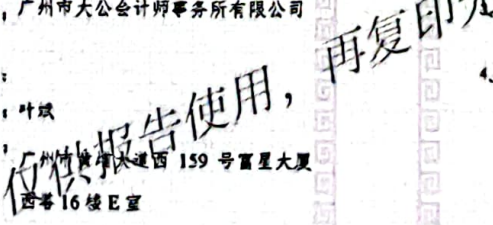 广州市大公会计师事务所有限公司
叶斌
广州市黄埔大道西 159 号富星大厦
西塔 16 楼 E 室
仅供报告使用，再复印无
4、